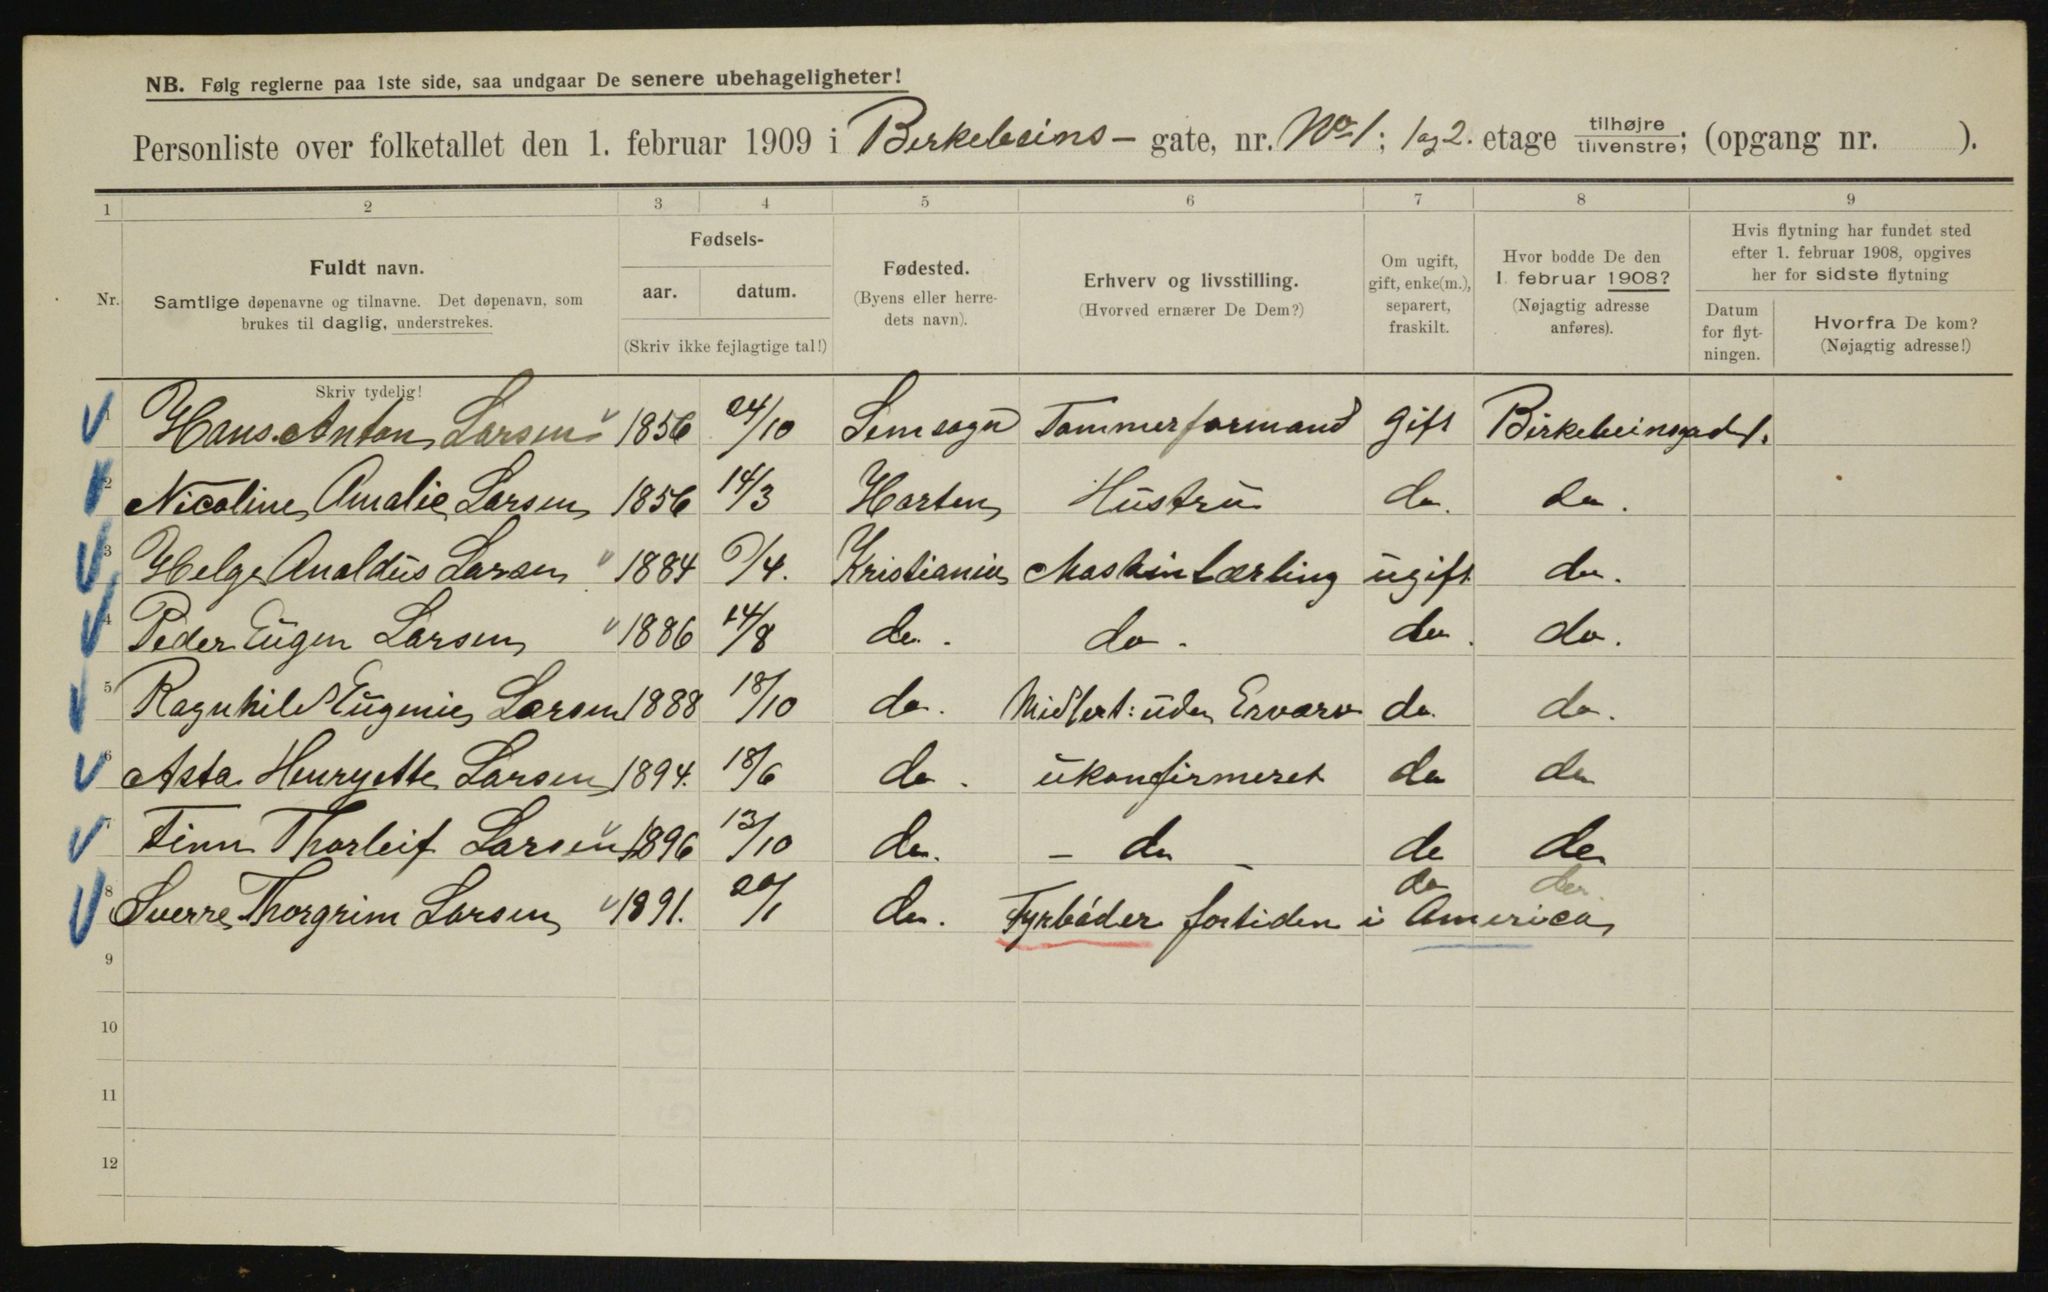 NB. Følg reglerne paa 1ste side, saa undgaar De senere ubehageligheter!
Personliste over folketallet den 1. februar 1909 i Birkebeins - gate, nr. No 1; 1 og 2. etage tilhøjre / tilvenstre; (opgang nr. ).
1 2 3 4 5 6 7 8 9
Nr.
Fuldt navn.
Samtlige døpenavne og tilnavne. Det døpenavn, som
brukes til daglig, understrekes.
Skriv tydelig!
Fødsels-
aar. datum.
(Skriv ikke fejlagtige tal!)
Fødested.
(Byens eller herre-
dets navn).
Erhverv og livsstilling.
(Hvorved ernærer De Dem?)
Om ugift,
gift, enke(m.),
separert,
fraskilt.
Hvor bodde De den
1. februar 1908?
(Nøjagtig adresse
anføres).
Hvis flytning har fundet sted
efter 1. februar 1908, opgives
her for sidste flytning
Datum
for flyt-
ningen.
Hvorfra De kom?
(Nøjagtig adresse!)
1 Hans Anton Larsen 1856 24/10 Semsogn Tommerformand gift Birkebeinsgad 1.
2 Nicoline Amalie Larsen 1856 14/3 Horten Hustru do. do.
3 Helge Analdus Larsen 1884 /4. Kristiania Maskinlærling ugift do.
4 Peder Eugen Larsen 1886 14/8 do. do. do. do.
5 Ragnhild Eugenie Larsen 1888 18/10 do. Midlert: uden Erværv do. do.
6 Asta Henryette Larsen 1894. 18/6 do. ukonfirmeret do do
7 Finn Thorleif Larsen 1896 13/10 do. - do - do do
8 Sverre Thorgrim Larsen 1891. 20/1 do. Fyrbøder fortiden i America do do
9
10
11
12